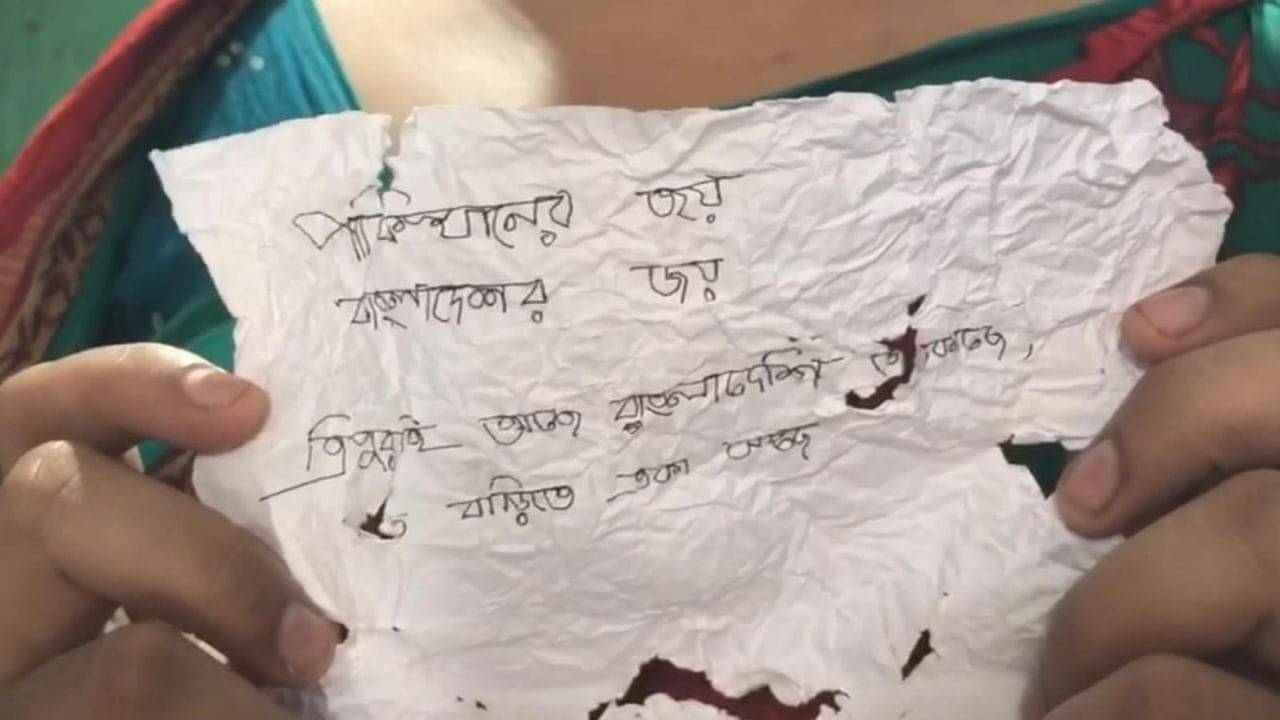 পাকিস্থানের জয়
বাংলাদেশের জয়
ত্রিপুরাই আছে বাংলাদেশি
বাড়িতে একা